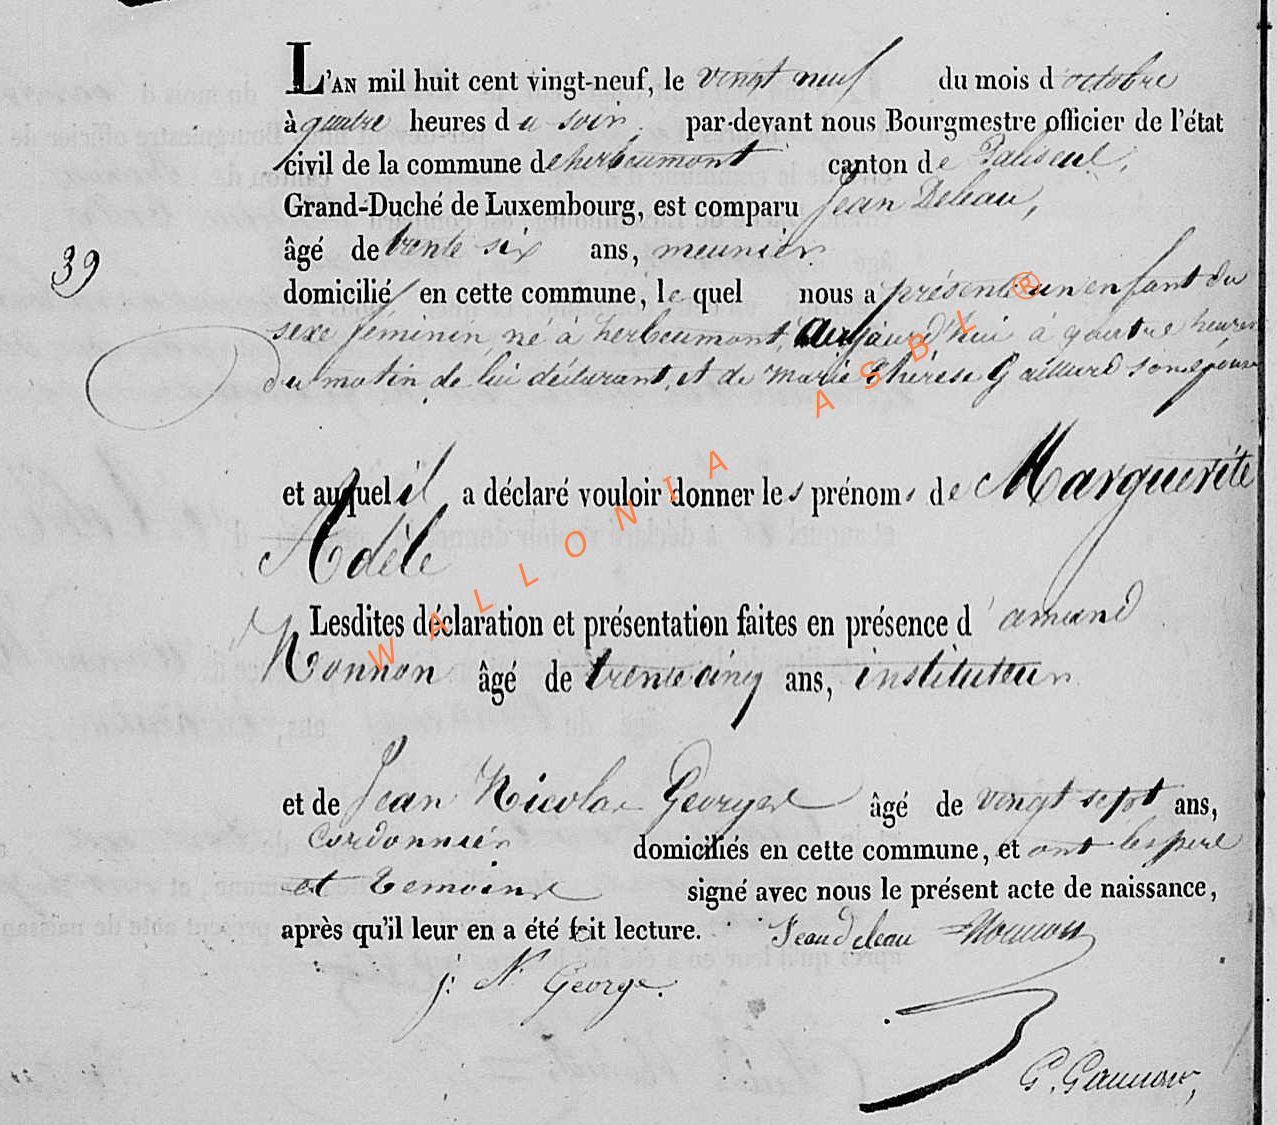 L'AN mil huit cent vingt-neuf, le vingt neuf du mois d'octobre
à quatre heures du soir, par-devant nous Bourgmestre officier de l'état
civil de la commune de herbeumont canton de Paliseul,
Grand-Duché de Luxembourg, est comparu Jean Deleau,
âgé de trente six ans, meunier
39
domicilié en cette commune, le quel nous a présenté un enfant du
sexe feminin, né à herbeumont, aujourd'hui à quatre heures
du matin de lui déclarant, et de marie thérèse Gaillard son épouse
et auquel il a déclaré vouloir donner les prénoms de Marguerite
Adèle
Lesdites déclaration et présentation faites en présence d'amand
Nonnon âgé de trente cinq ans, instituteur
et de Jean Nicolas Georges âgé de vingt sept ans,
Cordonnier domiciliés en cette commune, et ont les pere
et temoins signé avec nous le présent acte de naissance,
après qu'il leur en a été fait lecture. Jean deleau Nonnon
j: N George.
WALLONIA ASBL ®